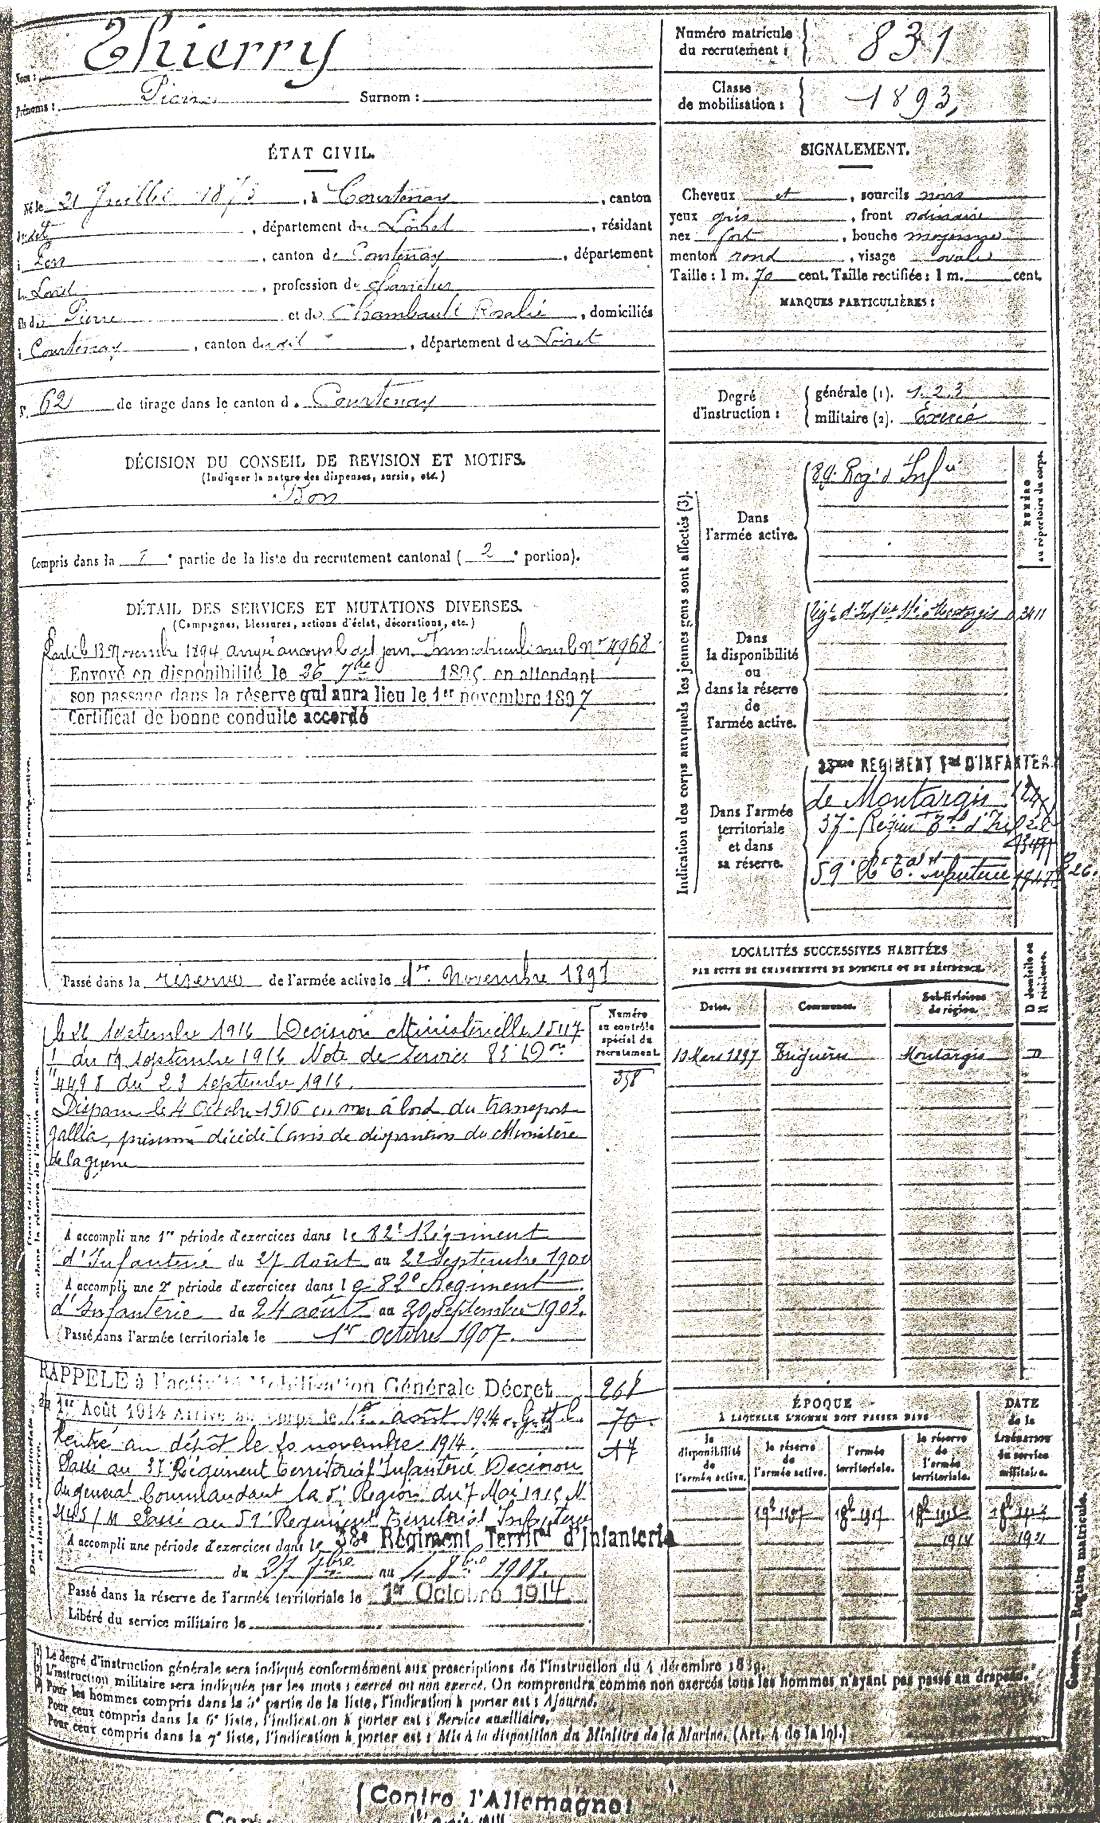 Nom : Thierry
Prénoms : Pierre Surnom :
Numéro matricule du recrutement : 831
Classe de mobilisation : 1893
ÉTAT CIVIL.
Né le 21 Juillet 1873, à Courtenay, canton
dudit, département du Loiret, résidant
à, canton de Courtenay, département
du Loiret, profession de
fils de Pierre et de Chambault Rosalie, domiciliés
à Courtenay, canton dudit, département du Loiret
N° 62 de tirage dans le canton d. Courtenay
DÉCISION DU CONSEIL DE REVISION ET MOTIFS.
(Indiquer la nature des dispenses, sursis, etc.)
Bon
Compris dans la 1e partie de la liste du recrutement cantonal (2e portion).
DÉTAIL DES SERVICES ET MUTATIONS DIVERSES.
(Campagnes, blessures, actions d'éclat, décorations, etc.)
Parti le 13 Novembre 1894 arrivé au corps le dit jour. Immatriculé sous le No 4968
Envoyé en disponibilité le 26 7bre 1895 en attendant
son passage dans la réserve qui aura lieu le 1er novembre 1897
Certificat de bonne conduite accordé
Dans l'armée active.
Passé dans la réserve de l'armée active le 1er Novembre 1897
le 26 septembre 1916 Décision Ministérielle 15117
du 19 septembre 1916 Note de Service
4498 du 23 septembre 1916.
Disparu le 4 Octobre 1916 en mer à bord du transport
Gallia, présumé décédé (avis de disparition du Ministère
de la guerre
Numéro au contrôle spécial du recrutement.
358
A accompli une 1re période d'exercices dans le 82e Régiment
d'Infanterie du 27 Août au 22 Septembre 1900
A accompli une 2e période d'exercices dans le 82e Régiment
d'Infanterie du 24 août au 20 Septembre 1902.
Passé dans l'armée territoriale le 1er octobre 1907.
RAPPELÉ à l'activité Mobilisation Générale Décret
1er Août 1914 Arrivé au corps le août 1914.
Rentré au dépôt le 20 novembre 1914.
Passé au 37e Régiment territorial d'Infanterie Décision
du général Commandant la 5e Région du 7 Mai 1915 N°
Passé au 59e Régiment Territorial Infanterie
268
70
17
A accompli une période d'exercices dans le 38e Régiment Territal d'Infanterie
du 27 7bre au 8bre 1908.
Passé dans la réserve de l'armée territoriale le 1er Octobre 1914
Libéré du service militaire le
SIGNALEMENT.
Cheveux et, sourcils noirs
yeux gris, front ordinaire
nez fort, bouche moyenne
menton rond, visage ovale
Taille : 1 m. 70 cent. Taille rectifiée : 1 m. cent.
MARQUES PARTICULIÈRES :
Degré d'instruction : générale (1). 1.2.3
militaire (2). Exercé
Indication des corps auxquels les jeunes gens sont affectés (3).
NUMÉRO au répertoire du corps.
Dans l'armée active.
89e Reg d'Infie
Dans la disponibilité ou dans la réserve de l'armée active.
Dans l'armée territoriale et dans sa réserve.
REGIMENT Tal D'INFANTERIE
de Montargis
37e Régim Tal d'Inf
59e Rt Tal Infanterie
LOCALITÉS SUCCESSIVES HABITÉES
PAR SUITE DE CHANGEMENTS DE DOMICILE OU DE RÉSIDENCE.
Dates. Communes. Subdivisions de région. D domicile ou R résidence.
Mars 1897 Triguères Montargis D
ÉPOQUE
À LAQUELLE L'HOMME DOIT PASSER DANS
la disponibilité de l'armée active. la réserve de l'armée active. l'armée territoriale. la réserve de l'armée territoriale.
DATE de la LIBÉRATION du service militaire.
1914 1921
(1) Le degré d'instruction générale sera indiqué conformément aux prescriptions de l'instruction du 4 décembre 1889.
(2) L'instruction militaire sera indiquée par les mots : exercé ou non exercé. On comprendra comme non exercés tous les hommes n'ayant pas passé au drapeau.
(3) Pour les hommes compris dans la 5e partie de la liste, l'indication à porter est : Ajourné.
Pour ceux compris dans la 6e liste, l'indication à porter est : Service auxiliaire.
Pour ceux compris dans la 7e liste, l'indication à porter est : Mis à la disposition du Ministre de la Marine. (Art. 4 de la loi.)
Guerre. — Registre matricule.
Contre l'Allemagne :